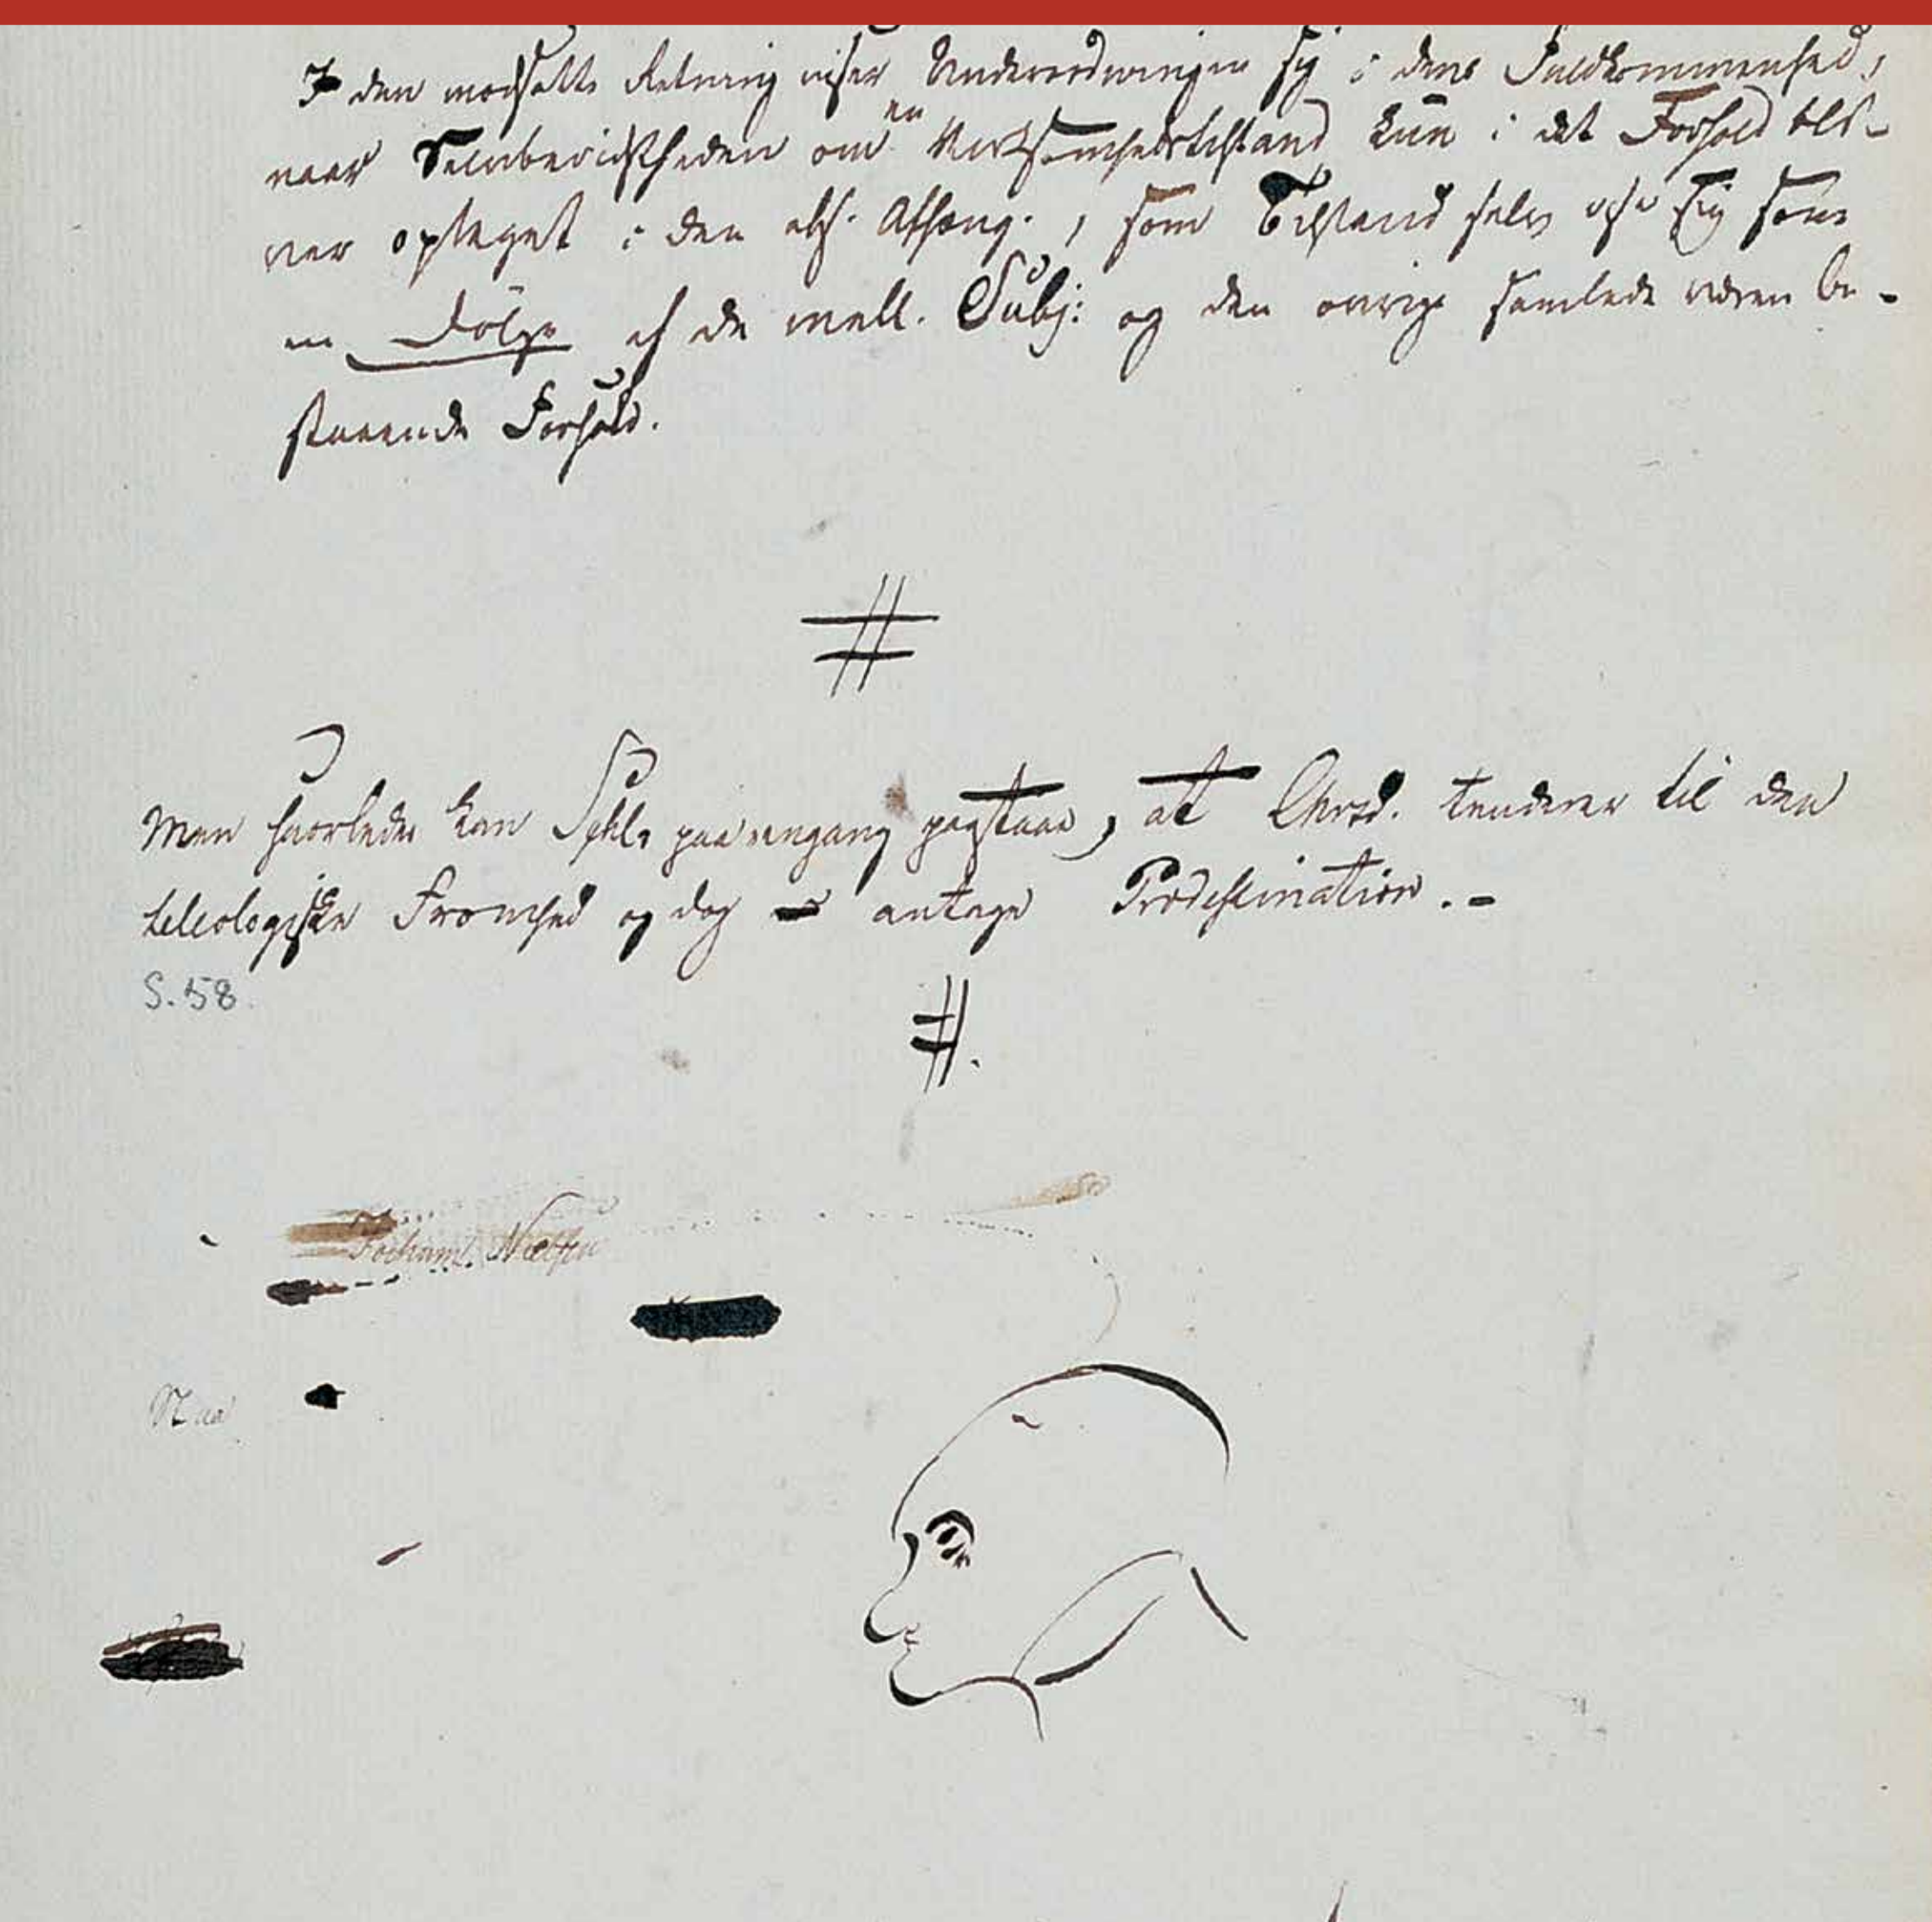 I den modsatte Retning viser Underordningen sig i dens Fuldkommenhed,
naar Selvbevidstheden om en Virksomhedstilstand kun i det Forhold bli-
ver optaget i den abs. Afhæng., som Tilstand selv
en Følge af de mell. Subj: og den øvrige samlede Væren be-
staaende Forhold.
#
Men hvorledes kan Schl. paa eengang paastaae, at Chrstd. tenderer til den
teleologiske Fromhed og dog antage Prædestination.-
S. 58.
#.
Jochum Nielsen